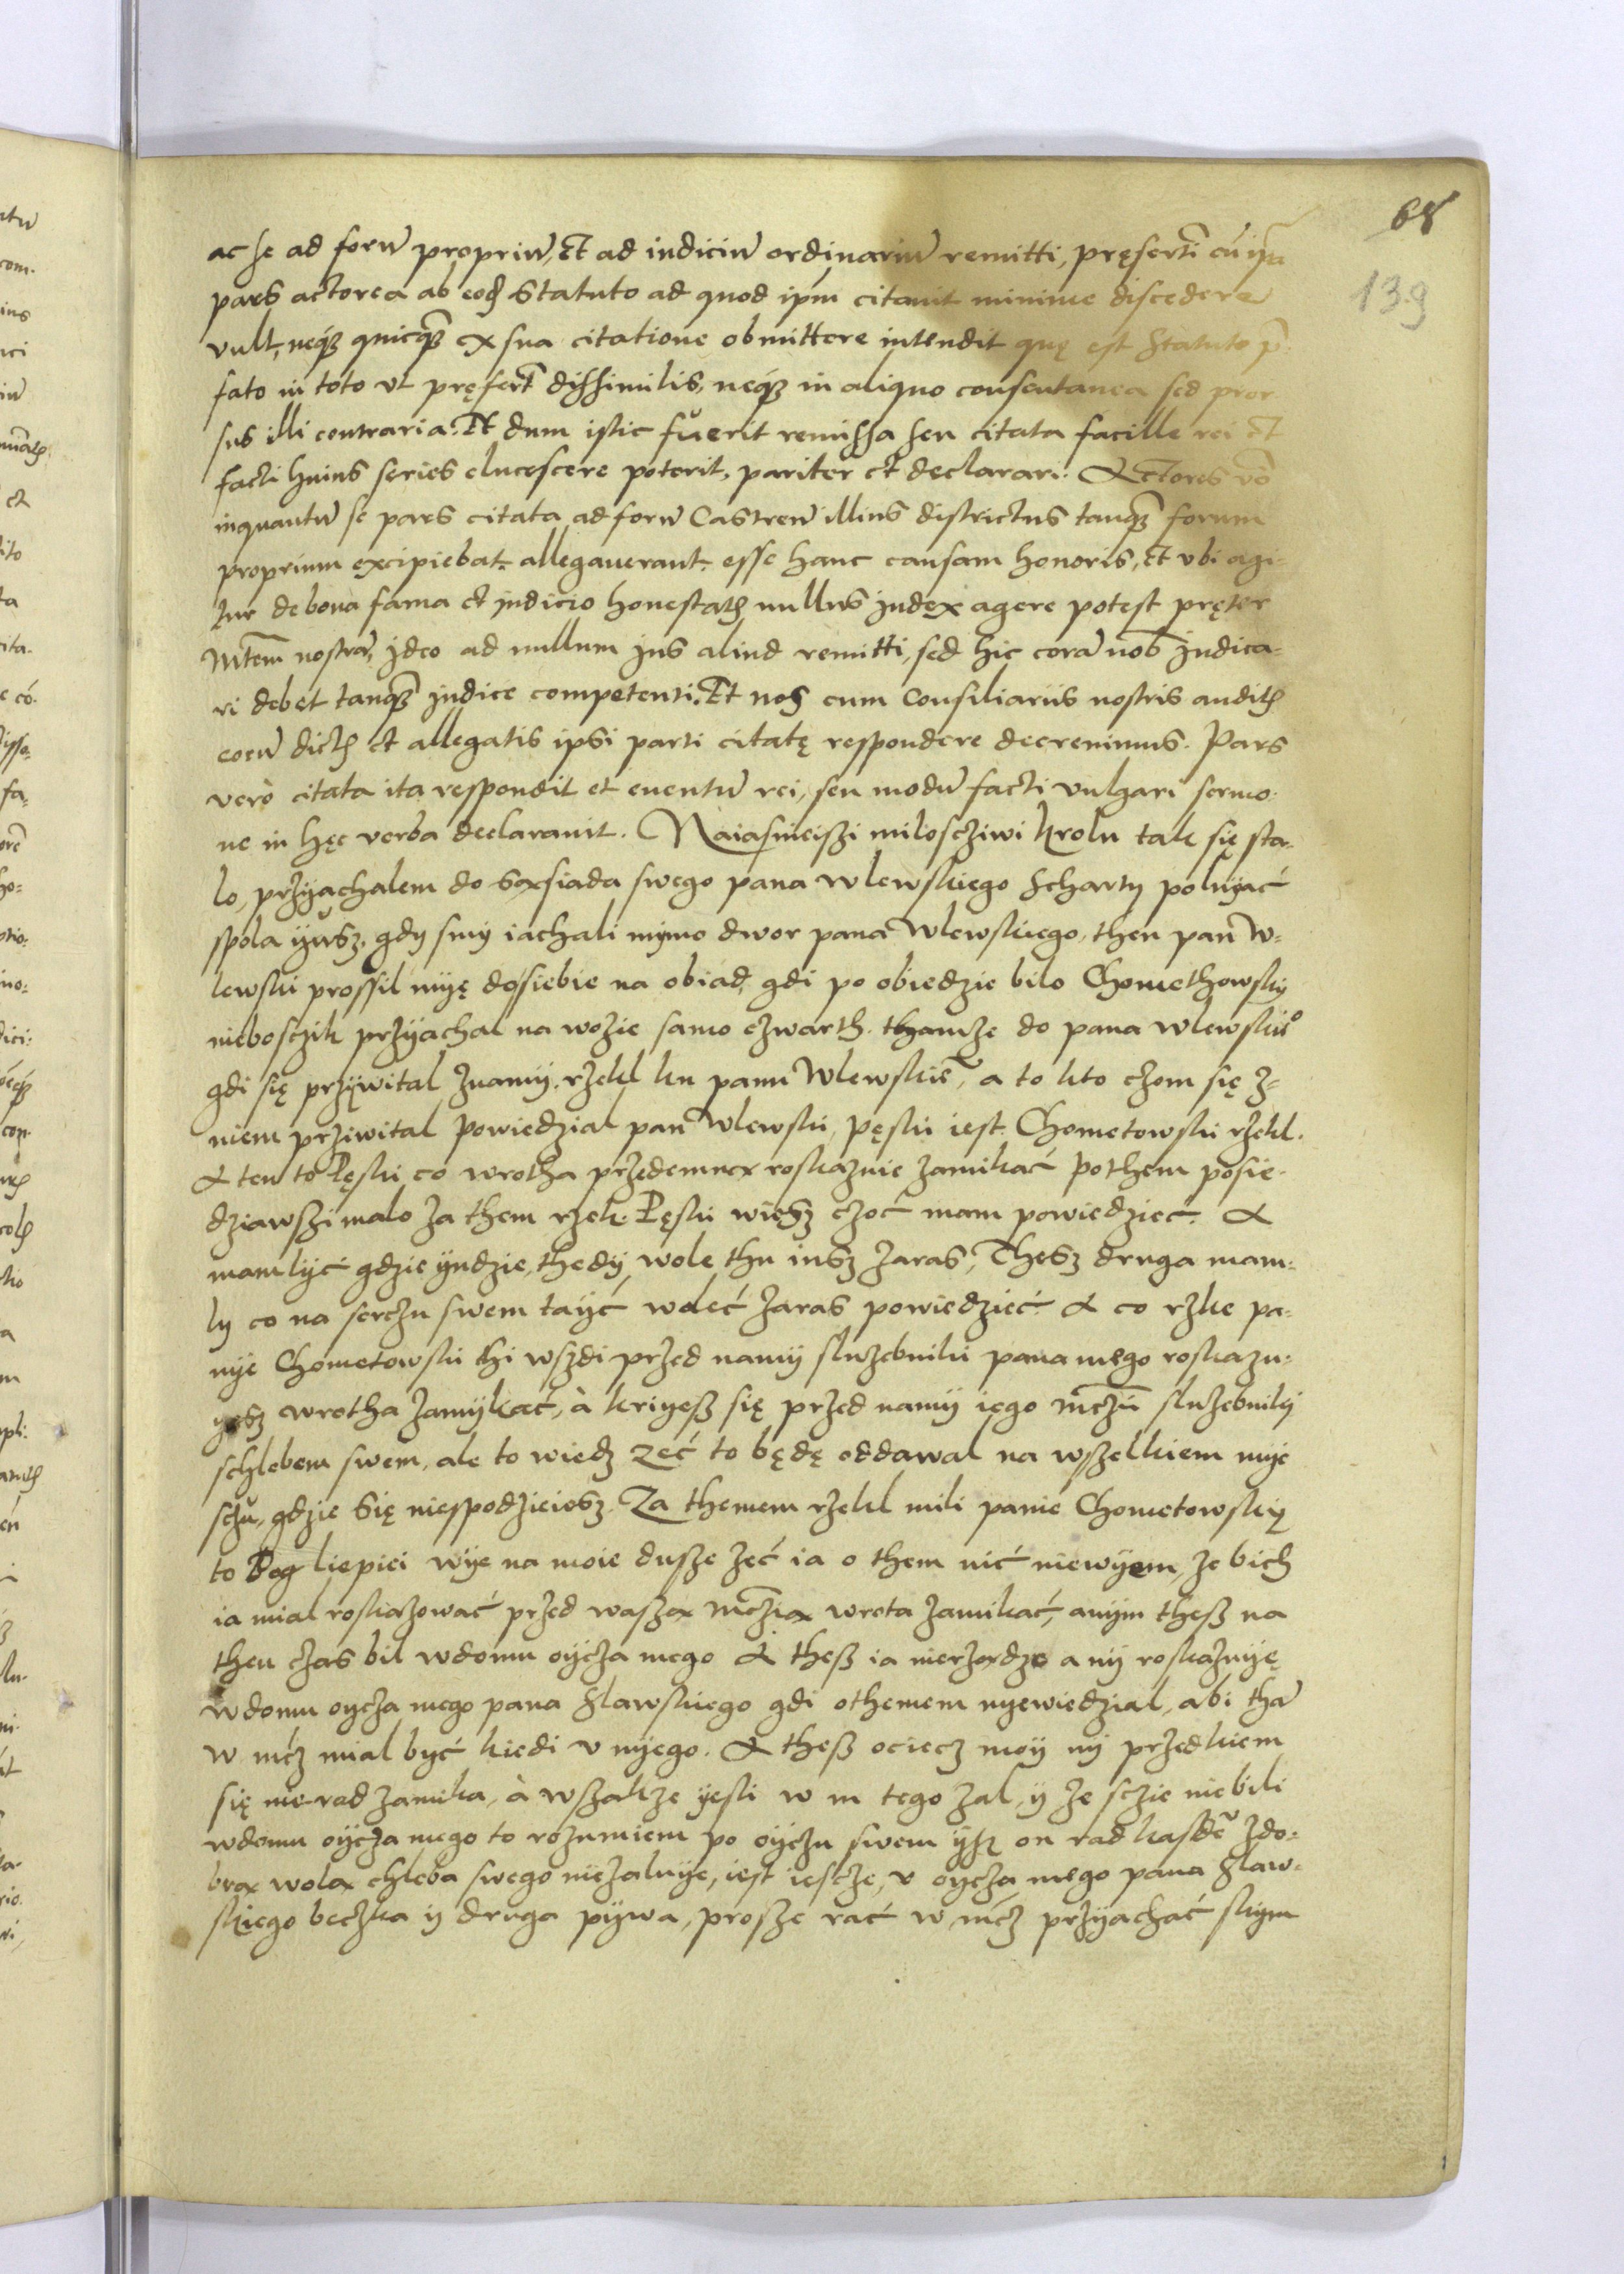 68
139
ac se ad forū propriū, et ad iudiciū ordinariū remitti, pręserti cū ipa
pars actorea ab eod Statuto ad quod ipm citauit minime discedere
vult, neq3 quicq3 ex sua citatione obmittere intendit quę est Statuto p̄-
fato in toto vt pręfert dissimilis, neq3 in aliquo consentanea sed pror
sus illi contraria. Et dum istic fuerit remissa seu citata facille rei et
facti huius series elucescere poterit, pariter et declarari. Actores vo
inquantū se pars citata ad forū Castren illius districtus tanq3 forum
proprium excipiebat. allegauerunt. esse hanc causam honoris, et vbi agi-
tur de bona fama et iudicio honestatis nullus iudex agere potest pręter
Mtem nostrā, ideo ad nullum ius aliud remitti, sed hic corā nob iudica-
ri debet tanq3 iudice competenti. Et nos cum Consiliariis nostris auditis
eorū dictis et allegatis ipsi parti citatę respondere decreuimus. Pars
verò citata ita respondit et euentū rei, seu modū facti vulgari sermo-
ne in hęc verba declarauit. Naiasnieiszi milosciwi krolu tak się sta-
lo, przyachalem do sąsiada swego pana Wlewskiego scharty poluyać
spola ijusz. gdy smy iachali mymo dwor pana Wlewskiego, then pan W-
lewski prossil myę do siebie na obiad, gdi po obiedzie bilo Chomethowsky
nieboszczik przyachal na wozie samo czwarth. thamze do pana Wlewskio
gdi się przywital znamy. rzekl ku panu Wlewskiē, a to kto czom się z-
niem prziwital powiedzial pan Wlewski, Pęski iest. Chometowski rzekl.
A ten to Pęski co wrotha przedemną roskaznie zamikać pothem posie-
dziawszi malo za them rzek. Pęski wiesz czoć mam powiedzieć. A
mamlyć gdzie yndzie, thedy wole thu iusz zaras, Thesz druga mam-
ly co na serczu swem tayć woleć zaras powiedzieć. A co rzke pa-
nye Chometowski thi wszdi przed namy sluzebniki pana mego roskazu-
yesz wrotha zamykać, à kriyesz się przed namy iego mczū sluzebniky
schlebem swem, ale to wiedz zeć to będę oddawal na wszelkiem mye
sczu, gdzie się niespodzieiesz. Za themem rzekl mili panie Chometowsky
to Bog liepiei wye na moie dusze zeć ia o them nić niewyem, ze bich
ia mial roskazować przed waszą mczią wrota zamikać, anym thesz na
then czas bil wdomu oycza mego A thesz ia nierządzę any roskazuyę
wdomu oycza mego pana Slawskiego gdi othemem nyewiedzial, abi thā
w mcz mial być kiedi v nyego. A thesz ociecz moy ny przedkiem
się nierad zamika, à wszakze yesli w m tego zal, y ze sczie niebili
wdomu oycza mego to rozumiem po oyczu swem ysz on rad kasdē zdo-
brą wolą chleba swego nieżaluye, iest iescze, v oycza mego pana Slaw-
skiego beczka y druga pywa, prosze rać w mcz przyachać skym